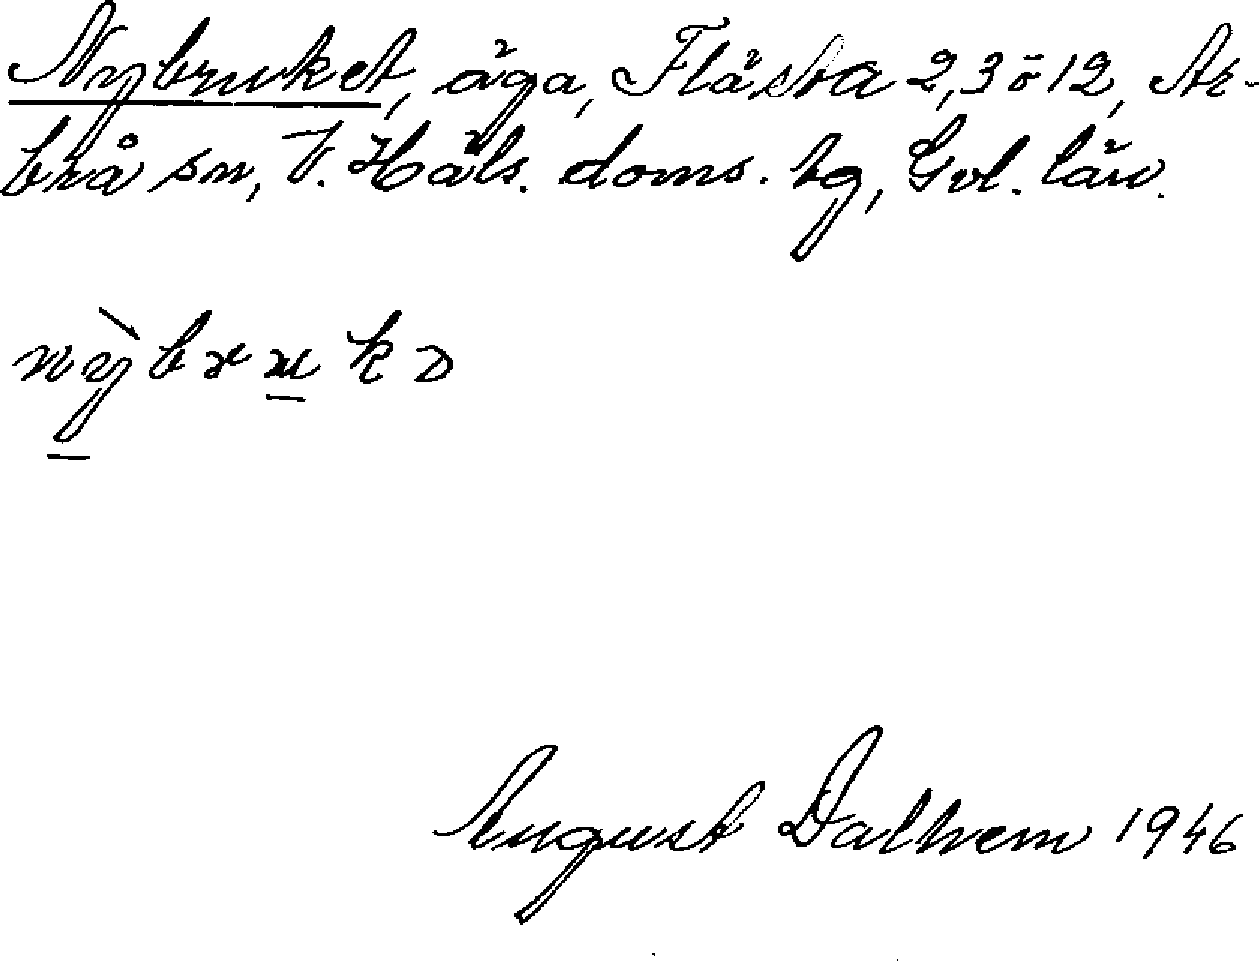 Nybruket, äga, Flästa 2,3 o 12, Ar-
brå sn, V. Häls. doms. tg, Gvl. län.
nỳbrukə
August Dalhem 1946